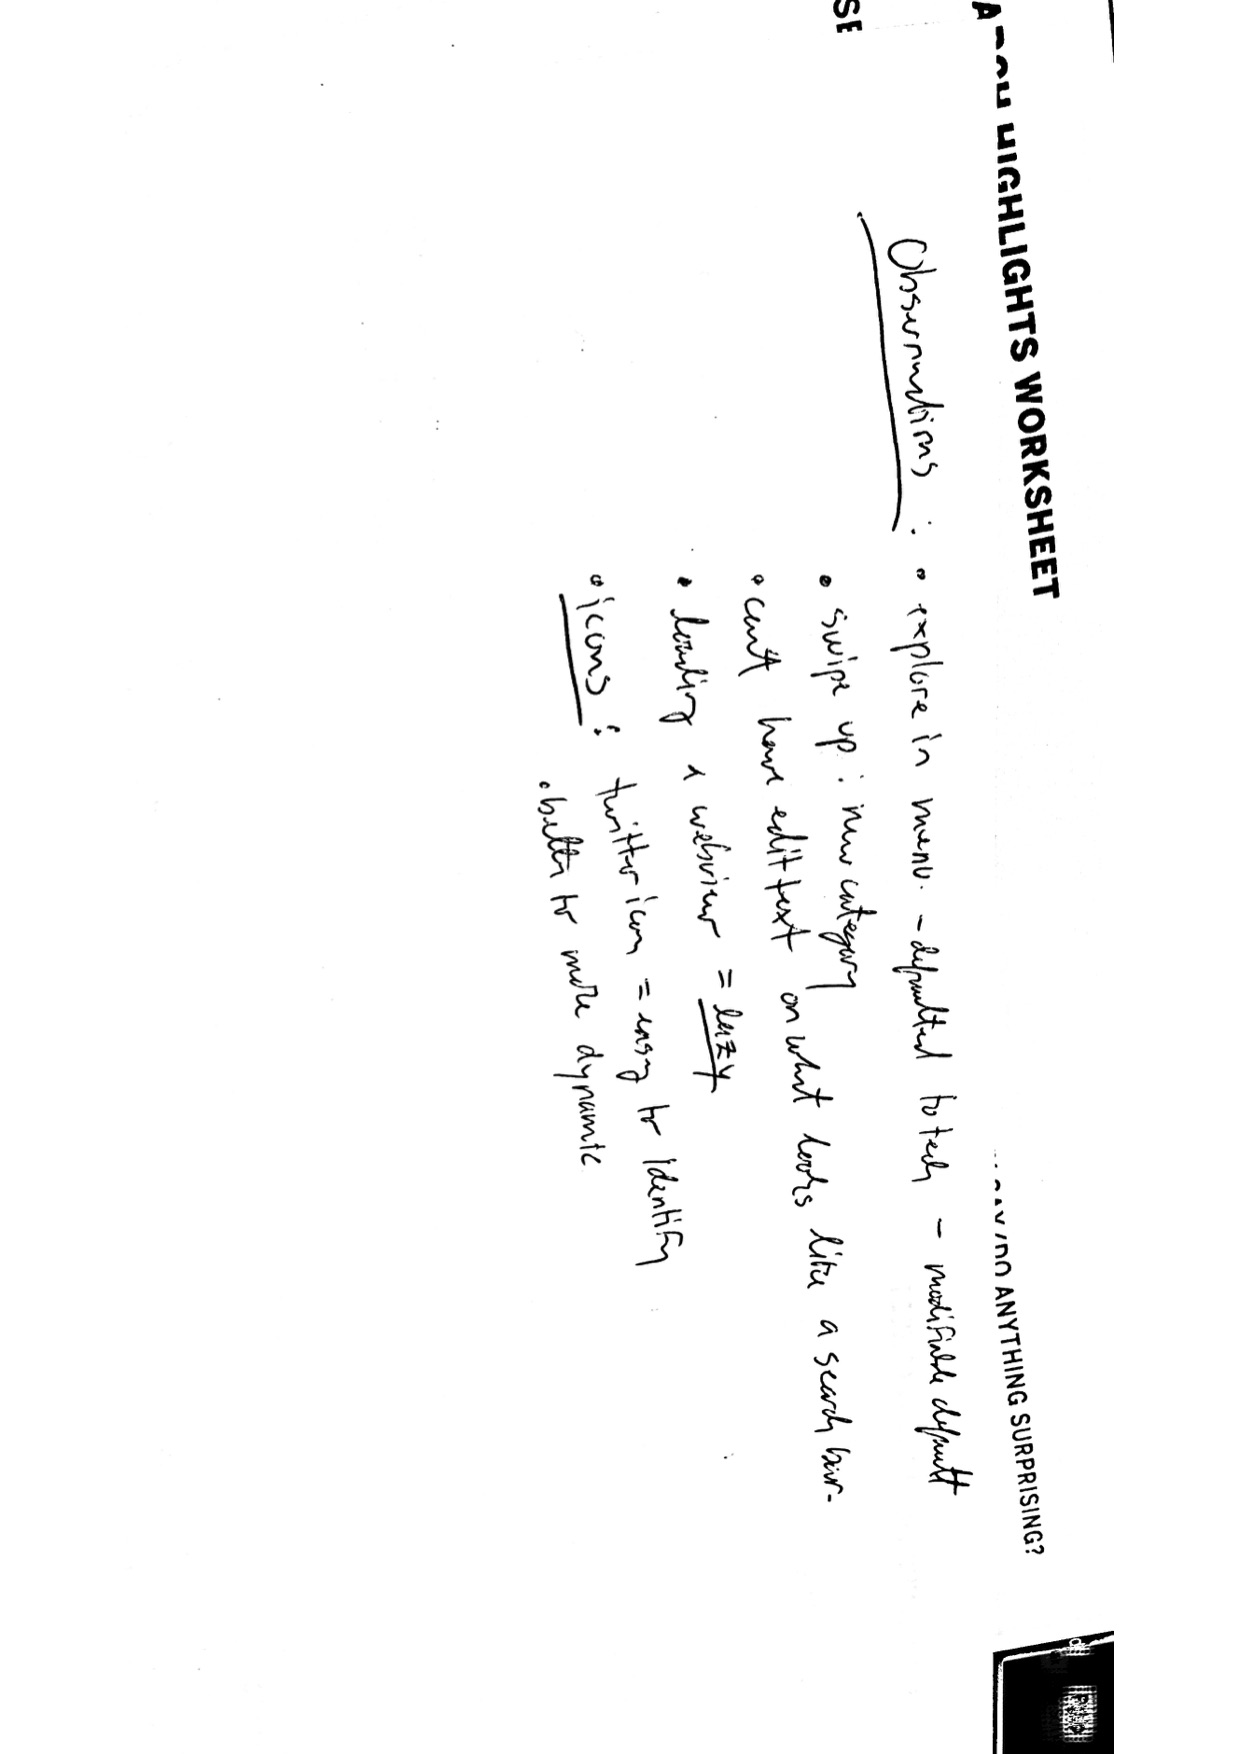 HIGHLIGHTS WORKSHEET
ANYTHING SURPRISING?
SE
Observations : • explore in menu. - defaulted to tech - modifiable default
• swipe up : new category
• can't have edit text on what looks like a search bar.
• loading a webview = lazy
• icons : twitter icon = easy to identify
• better to more dynamic